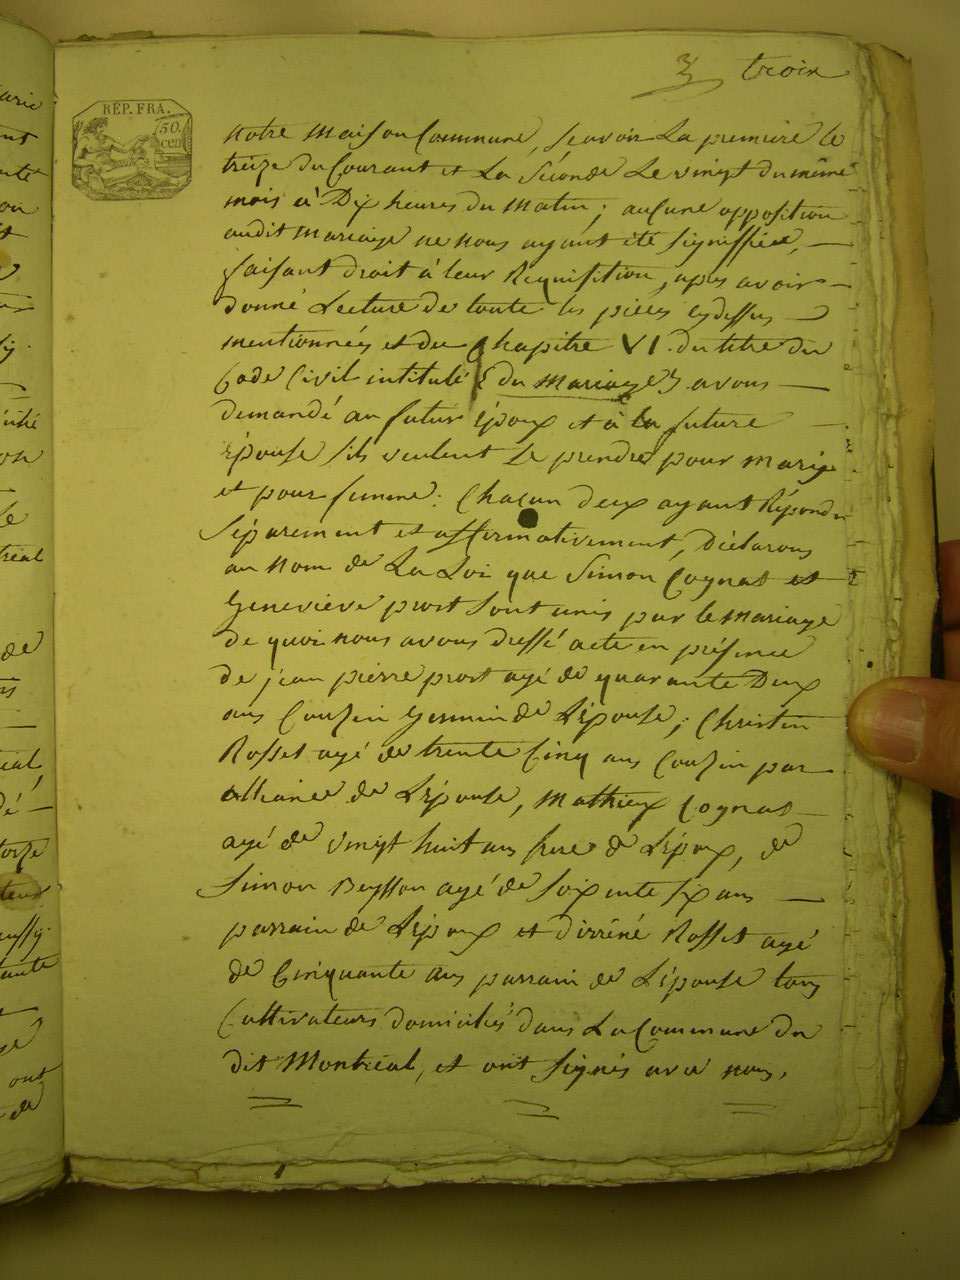 3 troix
RÉP. FRA.
50.
cen
notre maison Commune, Scavoir La premiere le
treize du Courant et La Séconde Le vingt du même
mois à Dix heures du matin; aucune opposition
audit mariage ne nous ayant été Signiffiée, —
faisant droit à leur Requisition, aprés avoir —
donné Lecture de toute les piéces cydessus —
mentionnées et du Chapitre VI. du titre du
Code Civil intitulé du mariage avons —
demandé au futur époux et à la future —
épouse s'ils veulent se prendre pour mary
et pour femme: Chacun deux ayant Répondu
Séparement et affirmativement, Déclarons
au nom de La Loi que Simon Cognat et
Geneviève prost sont unis par le mariage
de quoi nous avons dressé acte en présence
de jean pierre prost agé de quarante Deux
ans Couzin Germain de L'épouse; Christin
Rosset agé de trente Cinq ans Couzin par
alliance de L'épouse, Mathieu Cognat —
agé de vingt huit ans frere de L'époux, de
Simon Beysson agé de soixente six ans —
parrain de L'époux et Rosset agé
de Cinquante ans parrain de L'épouse tous
Cultivateurs domiciliés dans La Commune du
dit Montréal, et ont signés avec nous.